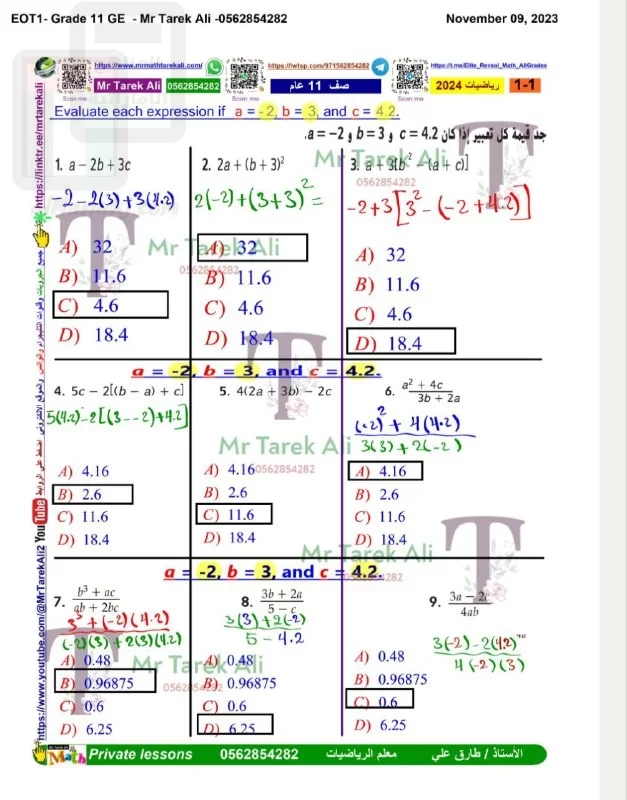 EOT1- Grade 11 GE - Mr Tarek Ali -0562854282 November 09, 2023
https://www.mrmathtarekali.com/ https://wtsp.com/971562854282 https://t.me/Elite_Reveal_Math_AllGrades
Mr Tarek Ali 0562854282 صف 11 عام رياضيات 2024 1-1
Scan me Scan me Scan me
Evaluate each expression if a = -2, b = 3, and c = 4.2.
جد قيمة كل تعبير إذا كان c = 4.2 و b = 3 و a = -2.
1. a − 2b + 3c
-2 - 2(3) + 3(4.2)
A) 32
B) 11.6
C) 4.6
D) 18.4
2. 2a + (b + 3)²
2(-2) + (3+3)² =
A) 32
B) 11.6
C) 4.6
D) 18.4
3. a + 3[b² − (a + c)]
-2+3[3² - (-2 + 4.2)]
A) 32
B) 11.6
C) 4.6
D) 18.4
a = -2, b = 3, and c = 4.2.
4. 5c − 2[(b − a) + c]
5(4.2) - 2[(3 - - 2) + 4.2]
A) 4.16
B) 2.6
C) 11.6
D) 18.4
5. 4(2a + 3b) − 2c
A) 4.16
B) 2.6
C) 11.6
D) 18.4
6. a² + 4c
3b + 2a
(-2)² + 4(4.2)
3(3) + 2(-2)
A) 4.16
B) 2.6
C) 11.6
D) 18.4
a = -2, b = 3, and c = 4.2.
7. b³ + ac
ab + 2bc
3³ + (-2)(4.2)
(-2)(3) + 2(3)(4.2)
A) 0.48
B) 0.96875
C) 0.6
D) 6.25
8. 3b + 2a
5 − c
3(3) + 2(-2)
5 - 4.2
A) 0.48
B) 0.96875
C) 0.6
D) 6.25
9. 3a − 2c
4ab
3(-2) - 2(4.2)
4(-2)(3)
A) 0.48
B) 0.96875
C) 0.6
D) 6.25
Mr Tarek Ali
0562854282
Mr Tarek Ali
0562854282
Mr Tarek Ali
0562854282
Mr Tarek Ali
0562854282
Mr Tarek Ali
0562854282
https://linktr.ee/mrtarekali
https://www.youtube.com/@MrTarekAli2 YouTube
Math Private lessons 0562854282 معلم الرياضيات الأستاذ / طارق علي